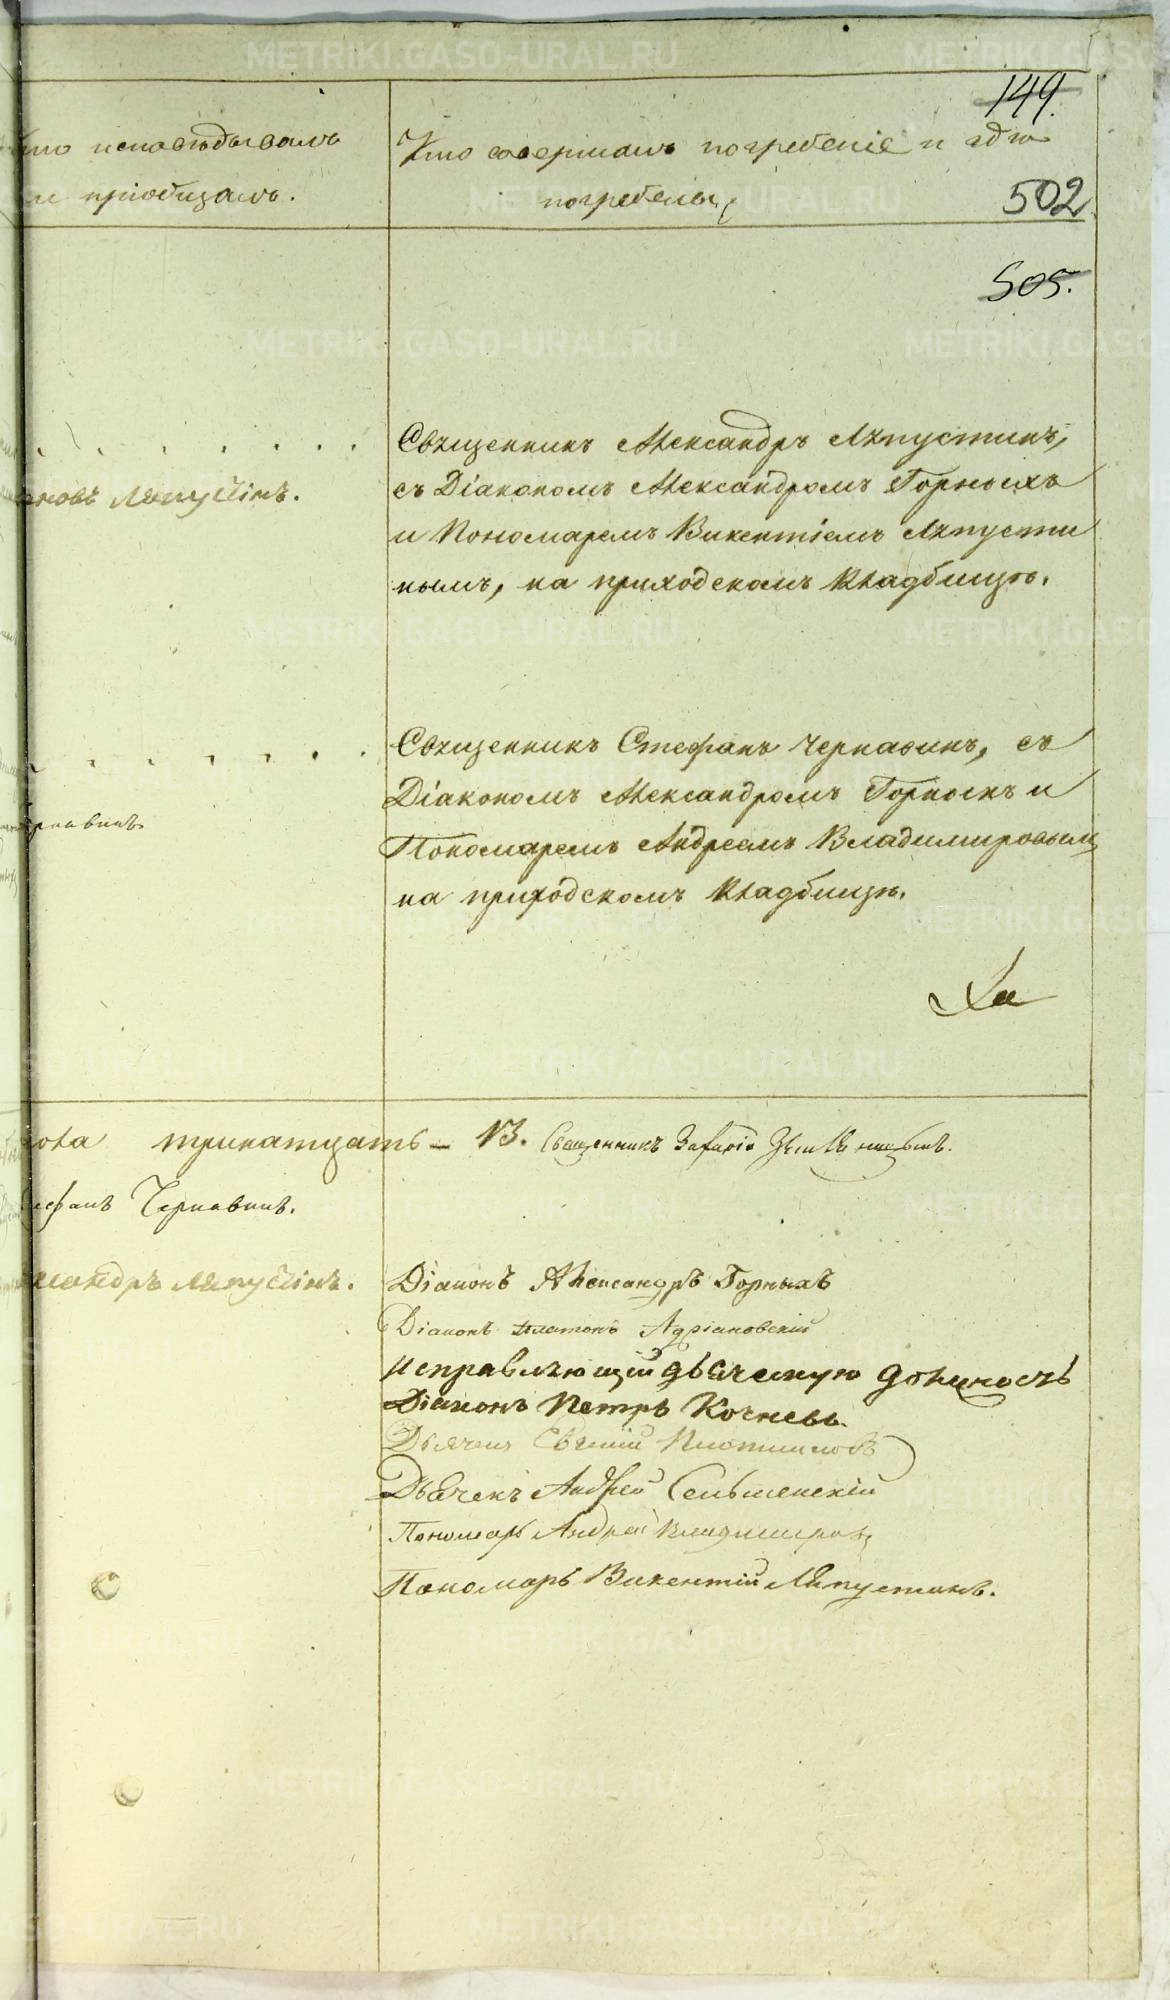 149.
исповѣдывалъ
и пріобщалъ.
Кто совершалъ погребеніе и гдѣ
погребены
502
505.
Священникъ Александръ Ляпустинъ,
съ Діакономъ Александромъ Горныхъ
и Пономаремъ Викентіемъ Ляпусти
нымъ, на приходскомъ кладбищѣ.
новъ Ляпустинъ.
Священникъ Стефанъ Чернавинъ, съ
Діакономъ Александромъ Горныхъ и
Пономаремъ Андреемъ Владимировым
на приходскомъ кладбищѣ.
рнавинъ
Ха
пола тринатцать – 13. Священникъ
ефанъ Чернавинъ.
сандръ Ляпустинъ.
Діаконъ Александръ Горныхъ
Діаконъ Платонъ Адріановскій
Исправляющій дьяческую должность
Діаконъ Петръ Кочневъ.
Дьячекъ Евгеній Плотниковъ
Дьячекъ Андрей Сельменскій
Пономарь Андрей Владимировъ
Пономарь Викентій Ляпустинъ.
METRIKI.GASO-URAL.RU